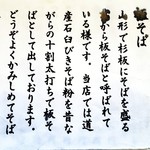 そば
山形で杉板にそばを盛る
から板そばと呼ばれて
いる様です。当店では道
産石臼びきそば粉を昔な
がらの十割太打ちで板そ
ばとして出しております。
どうぞよくかみしめてそば